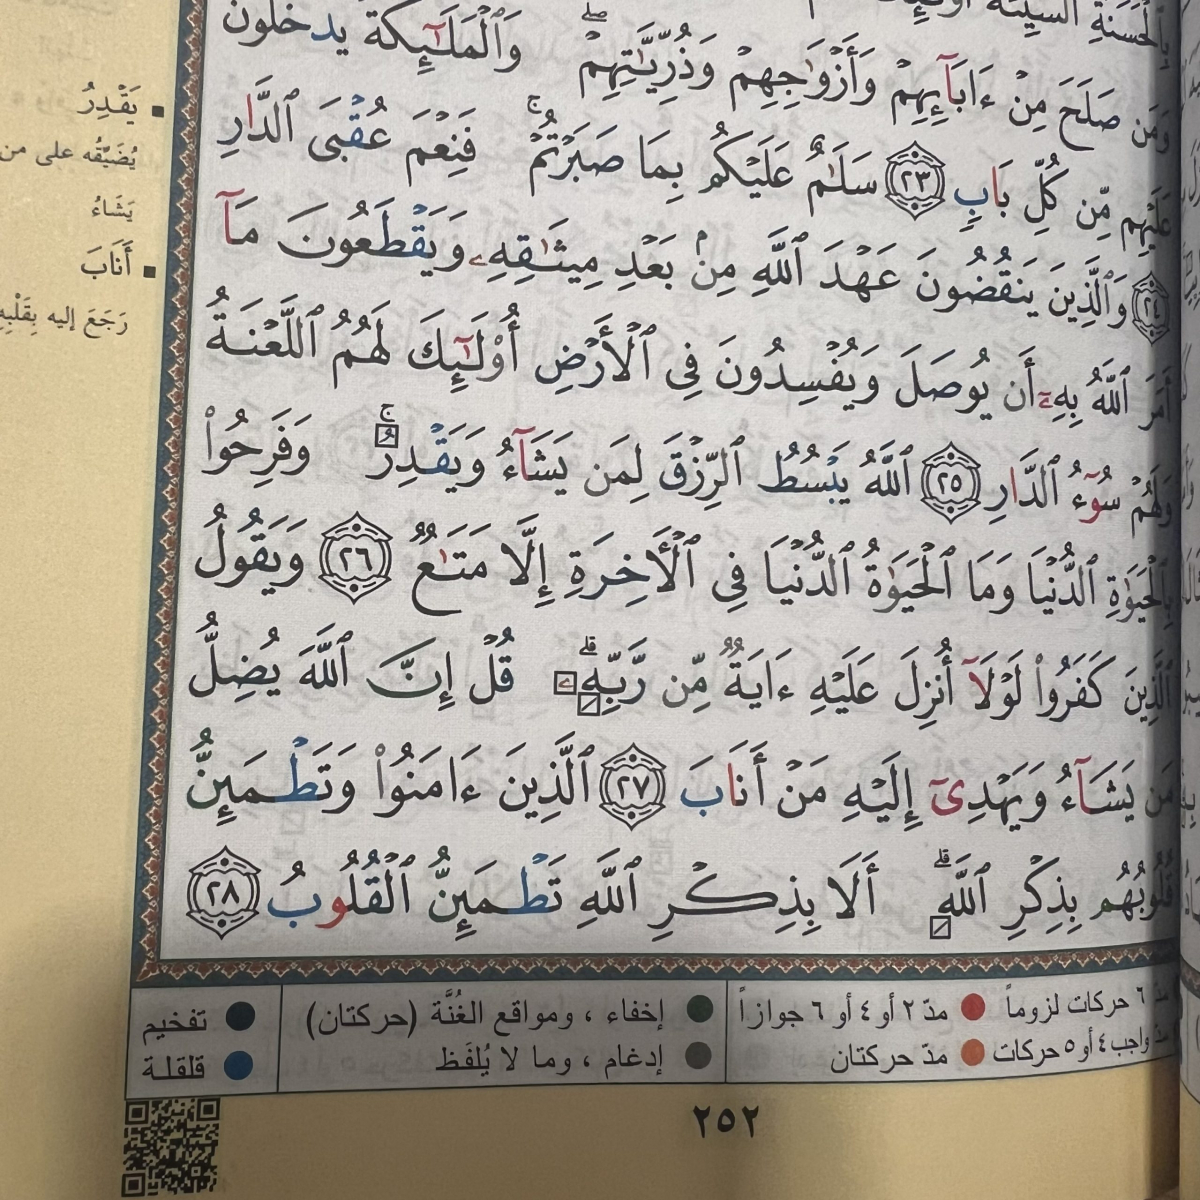 بِٱلْحَسَنَةِ ٱلسَّيِّئَةَ
وَمَن صَلَحَ مِنْ ءَابَآئِهِمْ وَأَزْوَٰجِهِمْ وَذُرِّيَّٰتِهِمْ ۖ وَٱلْمَلَٰٓئِكَةُ يَدْخُلُونَ
عَلَيْهِم مِّن كُلِّ بَابٍ ٢٣ سَلَٰمٌ عَلَيْكُم بِمَا صَبَرْتُمْ ۚ فَنِعْمَ عُقْبَى ٱلدَّارِ
٢٤ وَٱلَّذِينَ يَنقُضُونَ عَهْدَ ٱللَّهِ مِنۢ بَعْدِ مِيثَٰقِهِۦ وَيَقْطَعُونَ مَآ
أَمَرَ ٱللَّهُ بِهِۦٓ أَن يُوصَلَ وَيُفْسِدُونَ فِى ٱلْأَرْضِ أُو۟لَٰٓئِكَ لَهُمُ ٱللَّعْنَةُ
وَلَهُمْ سُوٓءُ ٱلدَّارِ ٢٥ ٱللَّهُ يَبْسُطُ ٱلرِّزْقَ لِمَن يَشَآءُ وَيَقْدِرُ ۚ وَفَرِحُوا۟
بِٱلْحَيَوٰةِ ٱلدُّنْيَا وَمَا ٱلْحَيَوٰةُ ٱلدُّنْيَا فِى ٱلْأَخِرَةِ إِلَّا مَتَٰعٌ ٢٦ وَيَقُولُ
ٱلَّذِينَ كَفَرُوا۟ لَوْلَآ أُنزِلَ عَلَيْهِ ءَايَةٌ مِّن رَّبِّهِۦ ۗ قُلْ إِنَّ ٱللَّهَ يُضِلُّ
مَن يَشَآءُ وَيَهْدِىٓ إِلَيْهِ مَنْ أَنَابَ ٢٧ ٱلَّذِينَ ءَامَنُوا۟ وَتَطْمَئِنُّ
قُلُوبُهُم بِذِكْرِ ٱللَّهِ ۗ أَلَا بِذِكْرِ ٱللَّهِ تَطْمَئِنُّ ٱلْقُلُوبُ ٢٨
▪ يَقْدِرُ
يُضَيِّقُه على من
يَشَاءُ
▪ أَنَابَ
رَجَعَ إليه بِقَلْبِهِ
مدّ ٦ حركات لزوماً ● مدّ ٢ أو ٤ أو ٦ جوازاً ● إخفاء ، ومواقع الغُنَّة (حركتان) ● تفخيم
مدّ واجب ٤ أو ٥ حركات ● مدّ حركتان ● إدغام ، وما لا يُلفَظ ● قلقلة
٢٥٢